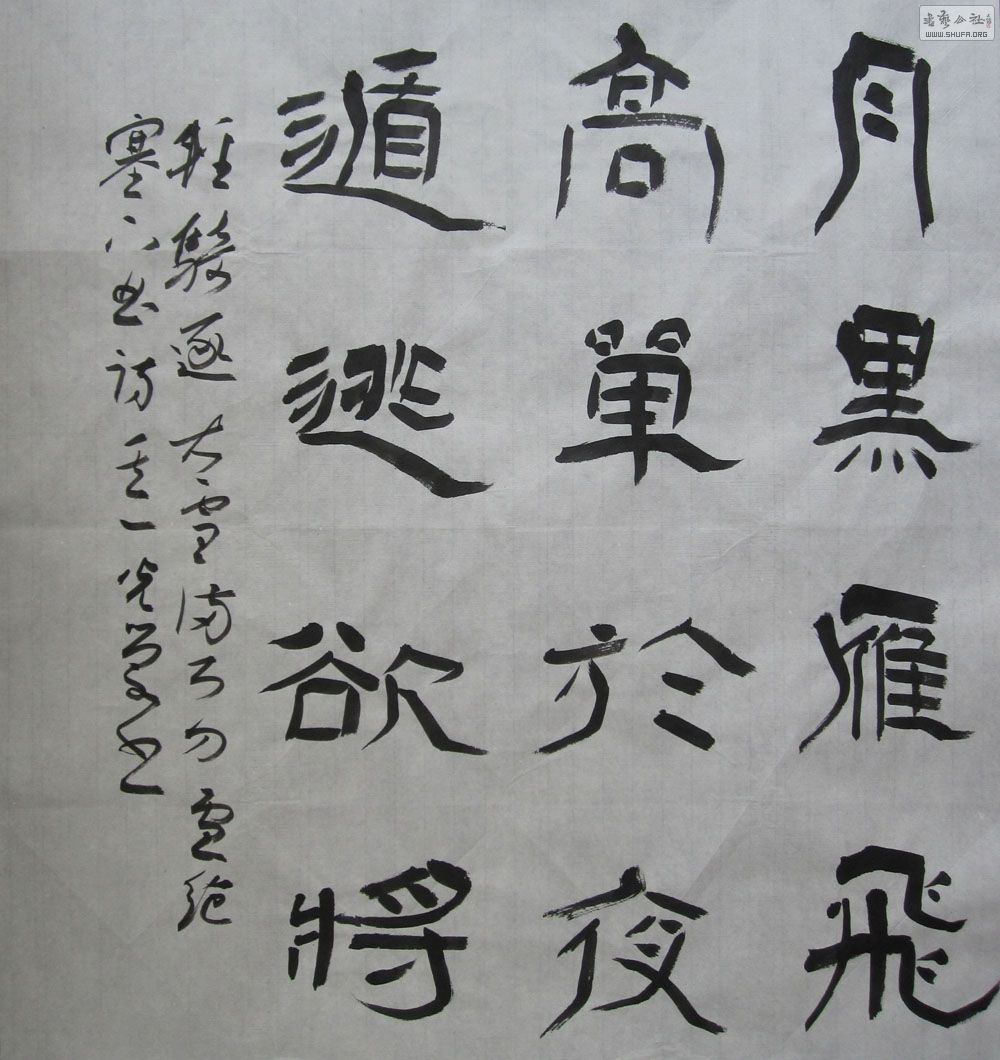 月黑雁飛
高單於夜
遁逃欲將
輕騎逐大雪滿弓刀盧綸
塞下曲詩之一書
書藝公社
WWW.SHUFA.ORG